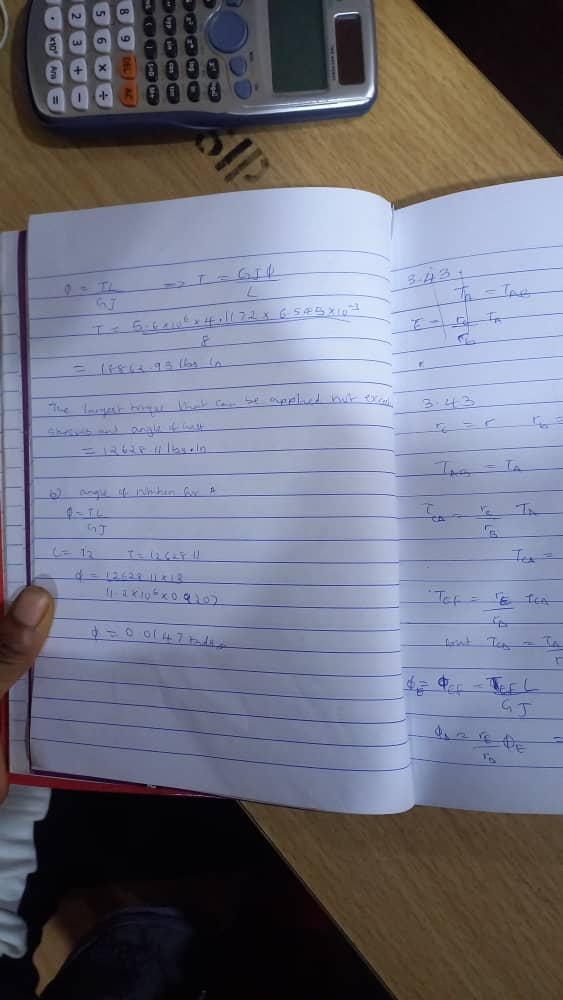 φ = TL/GJ => T = GJφ/L
T = 5.6x10⁶ x 4.1172 x 6.545x10⁻³
8
= 18862.93 lbs in
The largest torque that can be applied not exceed
stresses and angle of twist
= 12628.11 lbs.in
b) angle of rotation for A
φ = TL
GJ
L = 12 T = 12628.11
φ = 12628.11 x 12
11.2x10⁶ x 0.9207
φ = 0.0147 rads
3.43
= T_AB
T_A
3.43
r_c = r
T_AB = T_A
T_CD = r_c/r_B T_A
T_EF = r_E/r_D T_CD
but T_CD = T_A
φ_E = φ_EF = T_EF L
GJ
φ_D = r_E/r_D φ_E =